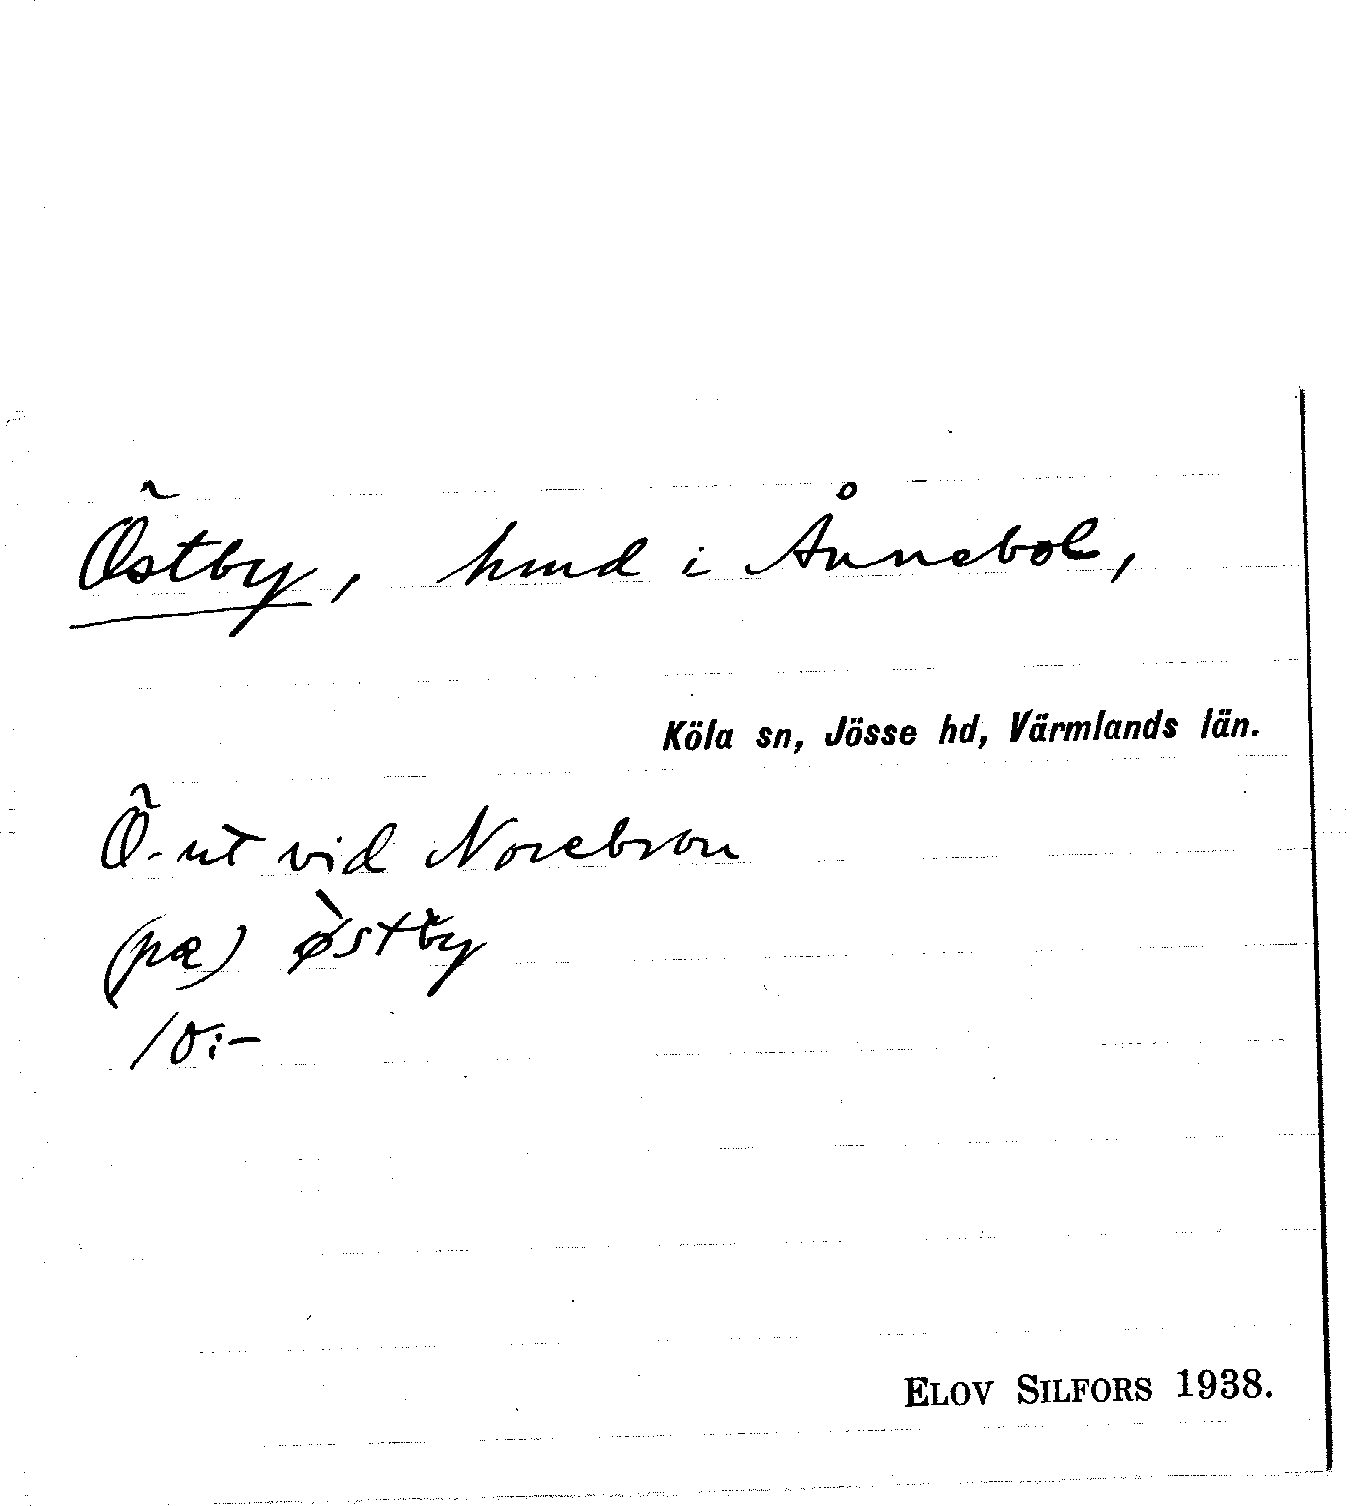 Östby, hmd i Ånnebol,
Köla sn, Jösse hd, Värmlands län.
Ö-ut vid Norebron
(pæ) østby
/ O:-
ELOV SILFORS 1938.